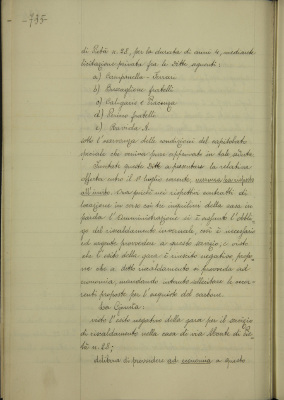 735
di Pietà n. 28, per la durata di anni 4, mediante
licitazione privata fra le Ditte seguenti:
a) Campanella - Ferrari
b) Bavaglione fratelli
c) Caligaris e Piacenza
d) Penino fratelli
e) A.
sotto l'osservanza delle condizioni del capitolato
speciale che venne pure approvato in tale seduta.
Invitati quelle Ditte a presentare la relativa
offerta entro il 1° luglio corrente, nessuna ha risposto
all'invito. Ora poiché nei rispettivi contratti di
locazione in corso coi tre inquilini della casa in
parola l'Amministrazione si è assunta l'obbli-
go del riscaldamento invernale, così è necessario
ed urgente provvedere a questo servizio, e visto
che l'esito della gara è riuscito negativo, propo-
ne che a detto riscaldamento si provveda ad
economia, mandando intanto sollecitare le occor-
renti proposte per l'acquisto del carbone.
La Giunta:
visto l'esito negativo della gara per il servizio
di riscaldamento nella casa di via Monte di Pie-
tà n. 28;
delibera di provvedere ad economia a questo